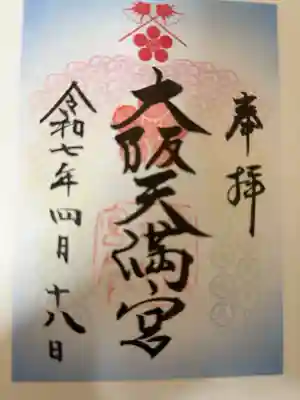 奉拝
大阪天満宮
令和七年四月十八日